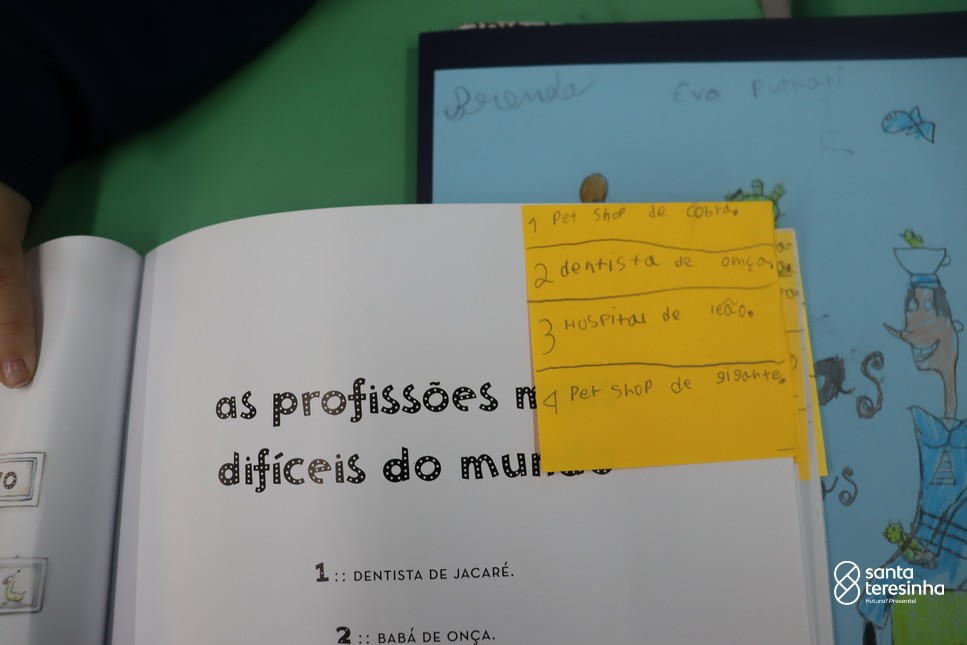 Brenda Eva Furnari
1 Pet shop de cobra.
2 dentista de omça.
3 Hospital de leão.
4 Pet shop de gigante.
as profissões m
difíceis do mundo
1 :: DENTISTA DE JACARÉ.
2 :: BABÁ DE ONÇA.
santa
teresinha
Futuro? Presente!